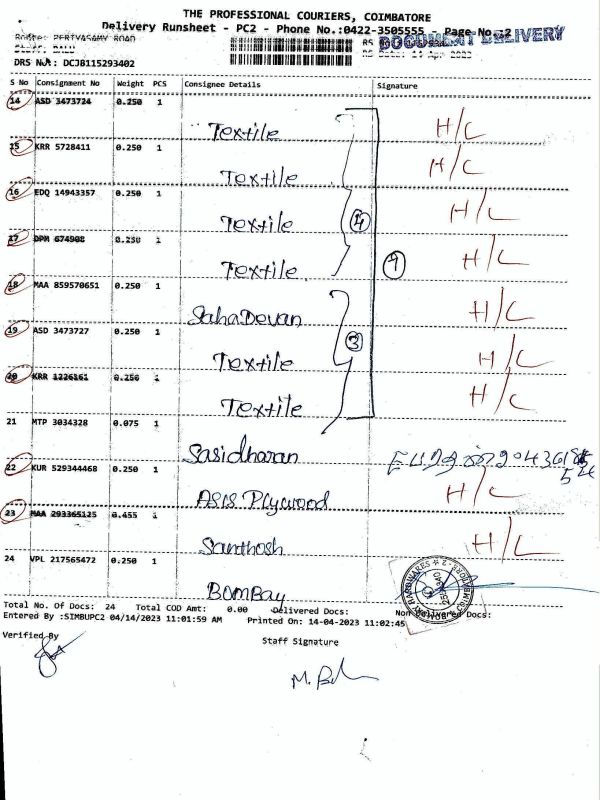 THE PROFESSIONAL COURIERS, COIMBATORE
Delivery Runsheet - PC2 - Phone No.:0422-3505555 Page No.:2
DOCUMENT DELIVERY
DRS No.: DCJ8115293402
S No Consignment No Weight PCS Consignee Details Signature
14 ASD 3473724 0.250 1
Textile H/C
15 KRR 5728411 0.250 1
Textile H/C
16 EDQ 14943357 0.250 1
Textile 4 H/C
17 DPM 674908 0.250 1
Textile H/C
18 MAA 859570651 0.250 1
SahaDevan H/C
19 ASD 3473727 0.250 1
3
Textile H/C
20 KRR 1226161 0.250 1
Textile H/C
21 MTP 3034328 0.075 1
Sasidharan
22 KUR 529344468 0.250 1
ASIS Plywood H/C
23 MAA 293365125 0.455 1
Santhosh H/C
24 VPL 217565472 0.250 1
BOMBAY
Total No. Of Docs: 24 Total COD Amt: 0.00 Delivered Docs: Non Delivered Docs:
Entered By :SIMBUPC2 04/14/2023 11:01:59 AM Printed On: 14-04-2023 11:02:45
Verified By Staff Signature